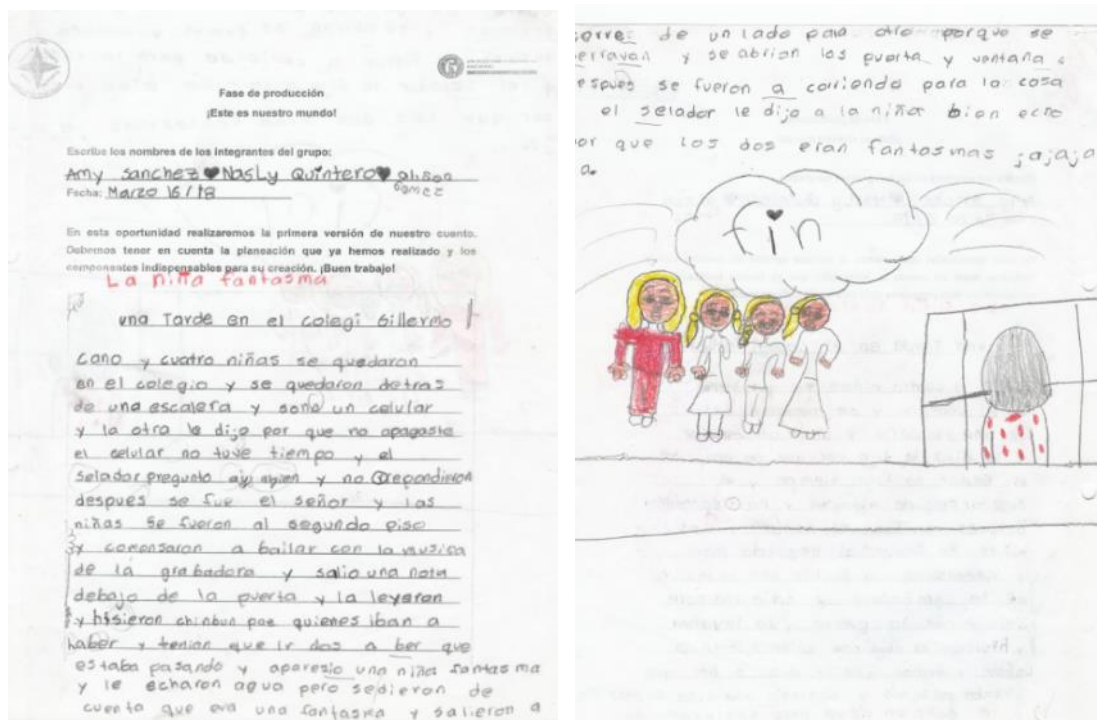 Fase de producción
¡Este es nuestro mundo!
Escribe los nombres de los integrantes del grupo:
Amy Sanchez Nasly Quintero alison
Fecha: Marzo 16/18 Gomez
En esta oportunidad realizaremos la primera versión de nuestro cuento.
Debemos tener en cuenta la planeación que ya hemos realizado y los
componentes indispensables para su creación. ¡Buen trabajo!
La niña fantasma
una Tarde en el colegi Gillermo
cano y cuatro niñas se quedaron
en el colegio y se quedaron detras
de una escalera y sono un celular
y la otra le dijo por que no apagaste
el celular no tuve tiempo y el
selador pregunto alguien y no repondieron
después se fue el señor y las
niñas se fueron al segundo piso
y comensaron a bailar con la musica
de la grabadora y salio una nota
debajo de la puerta y la leyeron
y hisieron chinbun poe quienes iban a
haber y tenian que ir dos a ber que
estaba pasando y aparesio una niña fantasma
y le echaron agua pero sedieron de
cuenta que era una fantasma y salieron a
corre de un lado para otro porque se
erravan y se abrian las puerta y ventana
espues se fueron a corriendo para la casa
el selador le dijo a la niña bien echo
or que los dos eran fantasmas jajaja
a.
fin